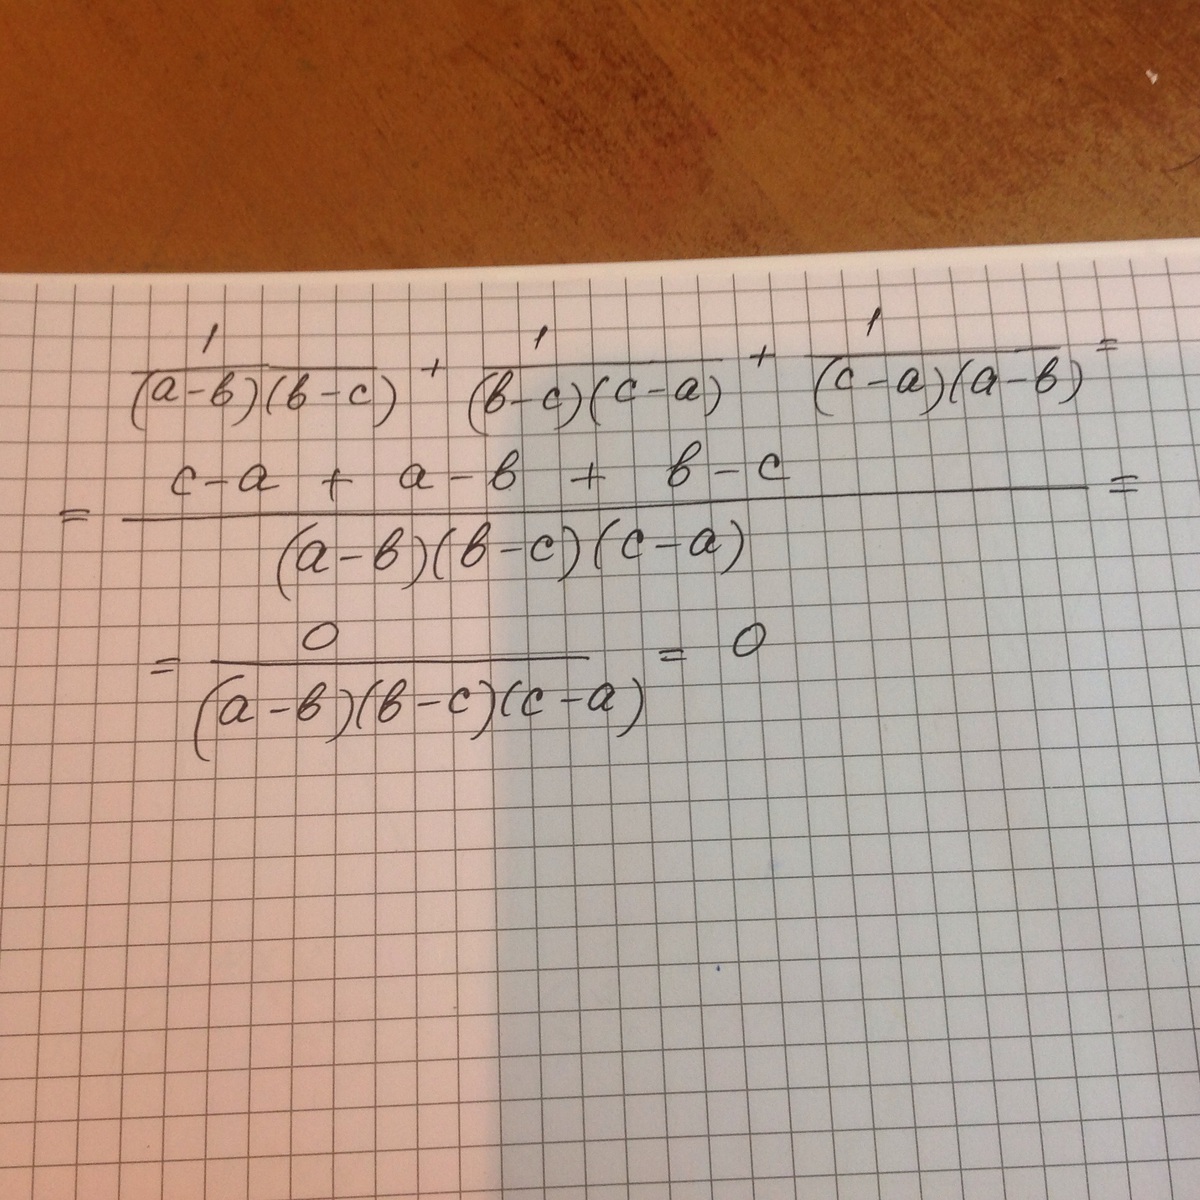 1/((a-b)(b-c)) + 1/((b-c)(c-a)) + 1/((c-a)(a-b)) =
= (c-a + a-b + b-c)/((a-b)(b-c)(c-a)) =
= 0/((a-b)(b-c)(c-a)) = 0